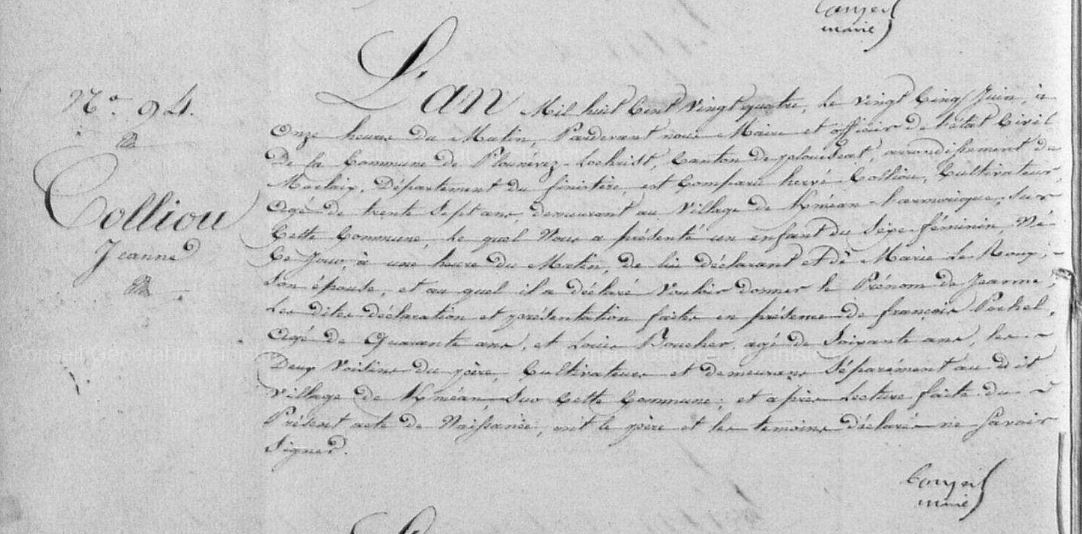 Conseil
maire
L'an Mil huit Cent Vingt quatre, le vingt Cinq Juin, à
Nº 94.
onze heures du Matin, Pardevant nous Maire et officier de l'état Civil
de la Commune de Plounevez-Lochrist, Canton de plouescat, arrondissement de
Morlaix, Département du finistère, est Comparu hervé Colliou, Cultivateur
Colliou
Jeanne
agé de trente Sept ans demeurant au Village de Kméan-harnorique, Sur
Cette Commune, le quel Nous a présenté un enfant du Sexe féminin, Né
Ce Jour, à une heure du Matin, de lui déclarant et de Marie Le Rouy,
Son épouse, et au quel il a déclaré Vouloir donner le Prénom de Jeanne,
Les dites déclaration et présentation faites en présence de françois
agé de Quarante ans, et Louis Boucher, agé de Soixante ans, les
Deux Voisins du père, Cultivateurs et demeurans Séparément au dit
village de Kméan, Sur Cette Commune; et après Lecture faite du
Présent acte de Naissance, ont le père et les temoins déclarés ne Savoir
Signer.
Conseil
maire